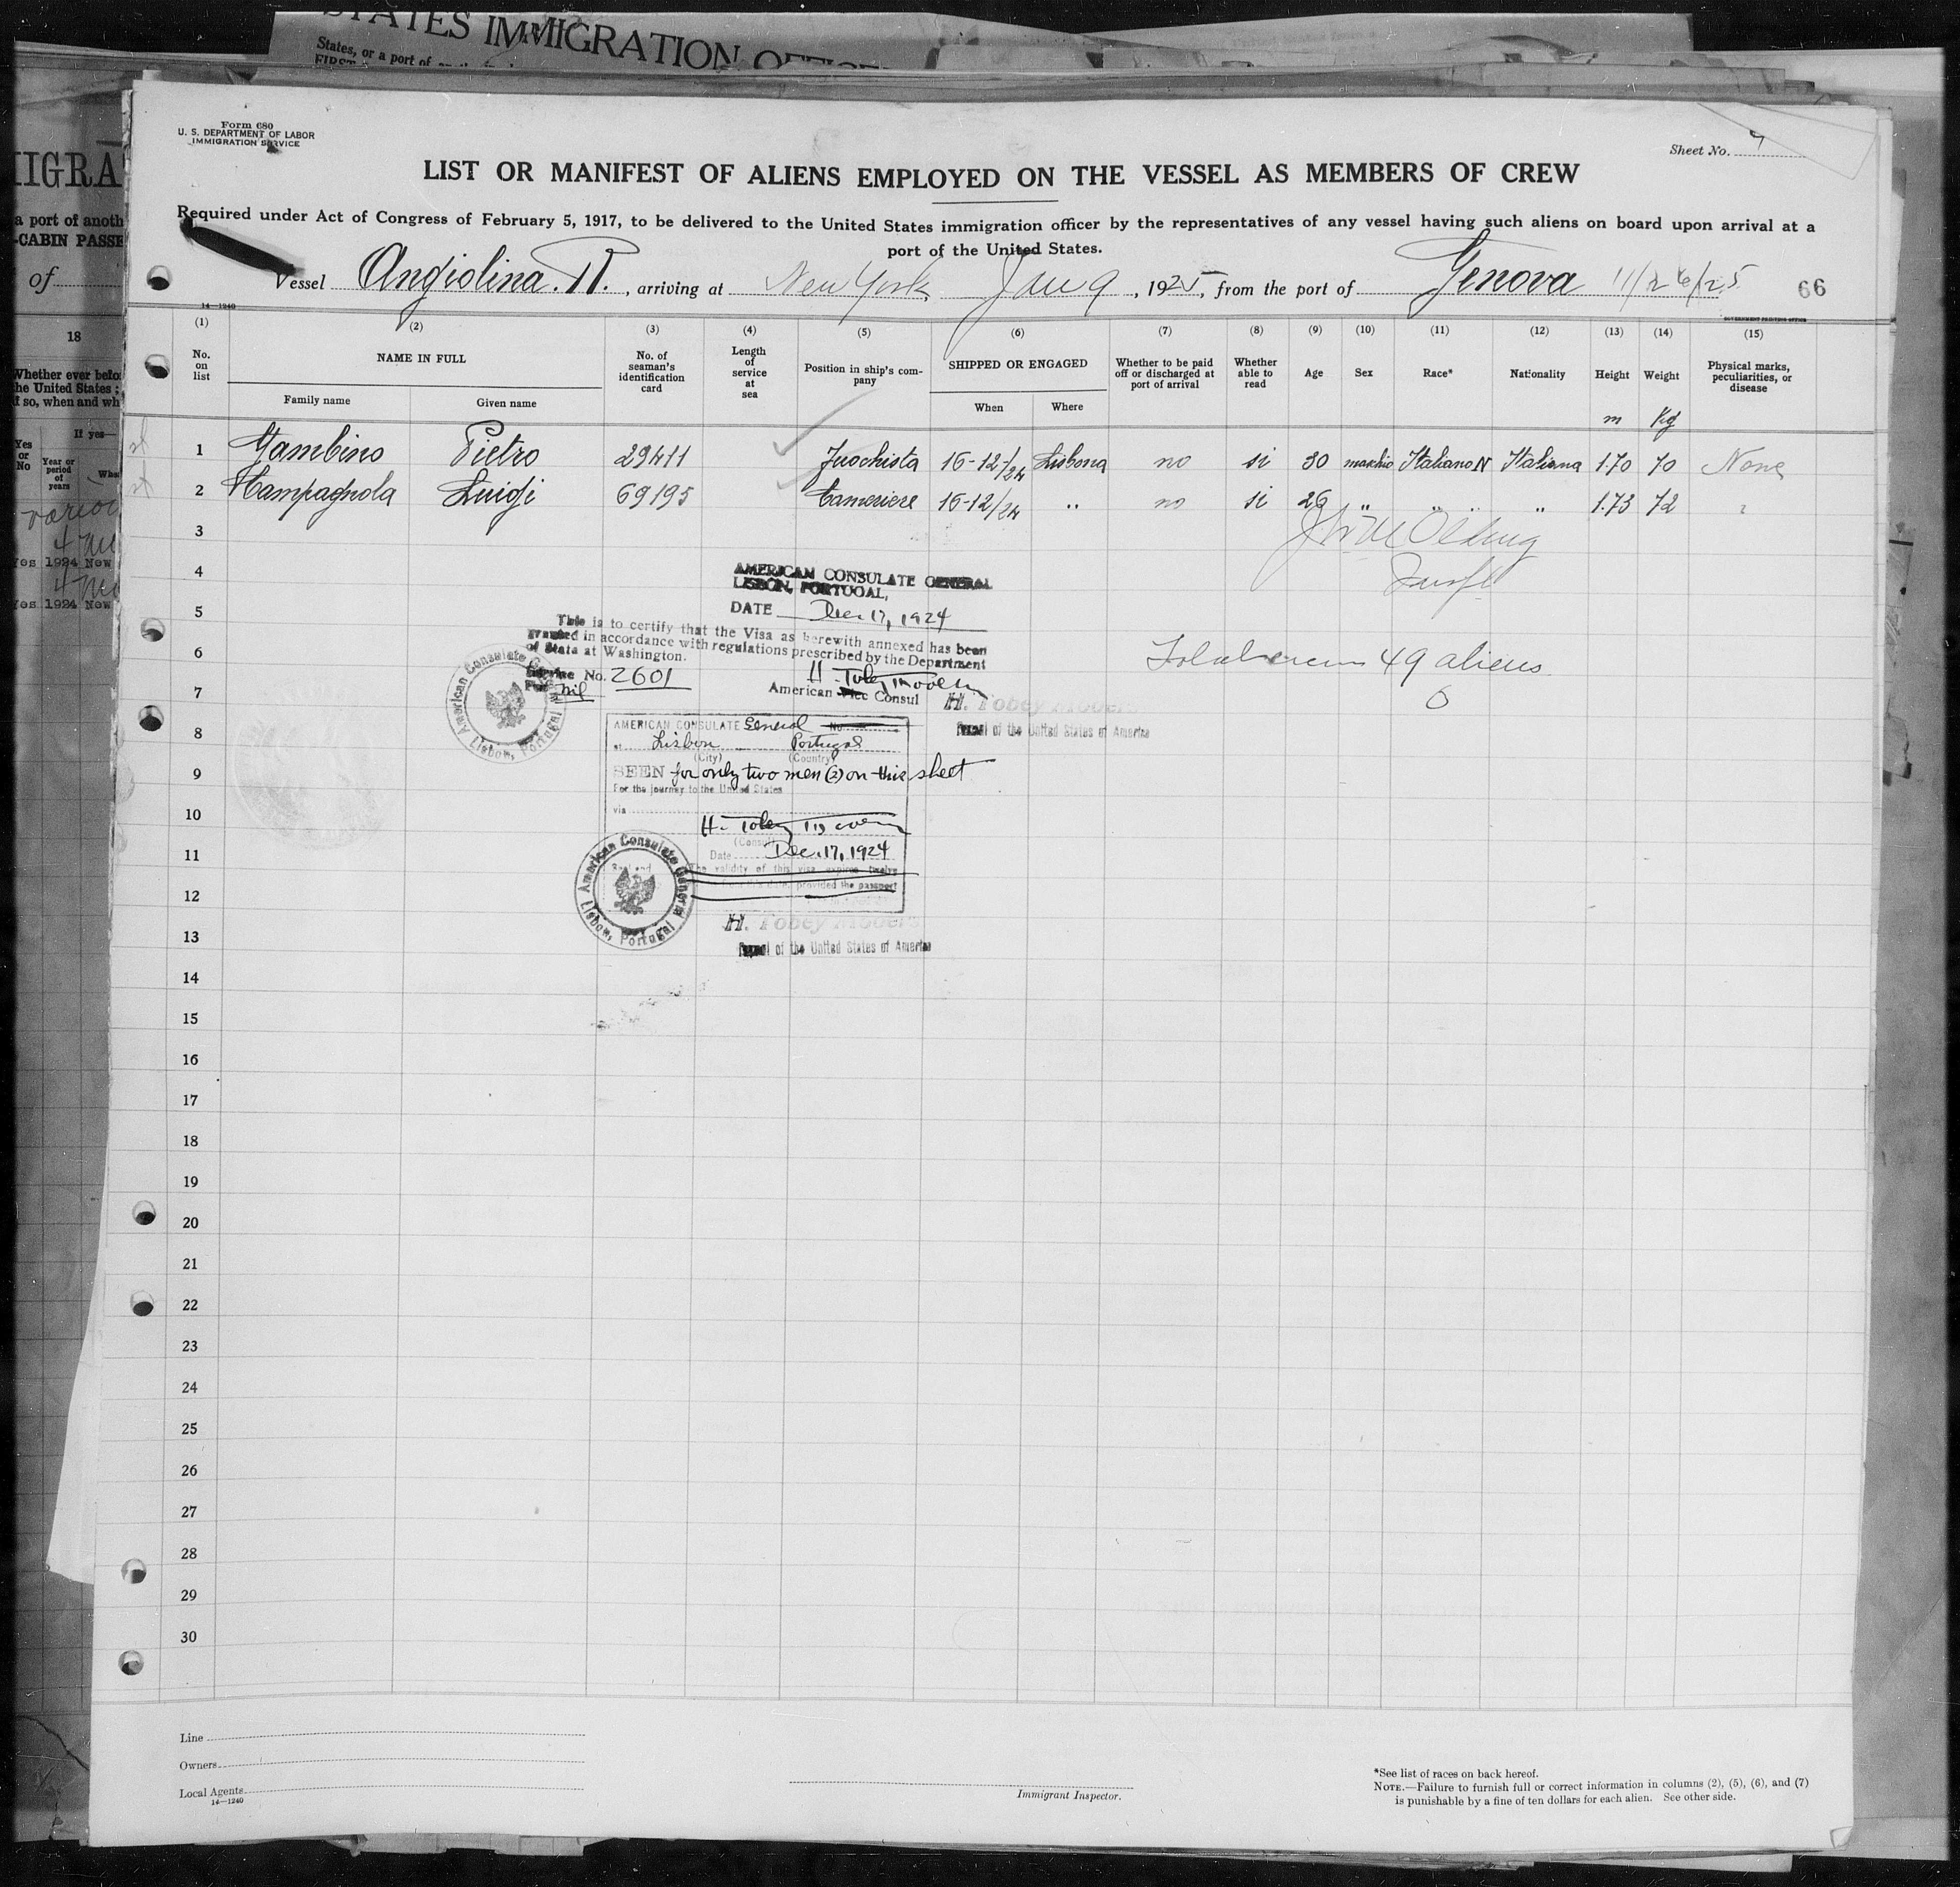 STATES IMMIGRATION OFFICE
States, or a port of
Form 680
U. S. DEPARTMENT OF LABOR
IMMIGRATION SERVICE
Sheet No.
LIST OR MANIFEST OF ALIENS EMPLOYED ON THE VESSEL AS MEMBERS OF CREW
Required under Act of Congress of February 5, 1917, to be delivered to the United States immigration officer by the representatives of any vessel having such aliens on board upon arrival at a
port of the United States.
Vessel Angiolina. R., arriving at New York Jan 9, 1925, from the port of Genova 11/26/25 66
14—1240
GOVERNMENT PRINTING OFFICE
(1) (2) (3) (4) (5) (6) (7) (8) (9) (10) (11) (12) (13) (14) (15)
No. on list
NAME IN FULL
Family name Given name
No. of seaman's identification card
Length of service at sea
Position in ship's company
SHIPPED OR ENGAGED
When Where
Whether to be paid off or discharged at port of arrival
Whether able to read
Age Sex Race* Nationality Height Weight
Physical marks, peculiarities, or disease
m Kg
1 Gambino Pietro 29411 Fuochista 16-12/24 Lisbona no si 30 maschio Italiano N Italiana 1.70 70 None
2 Campagnola Luigi 69195 Cameriere 16-12/24 " no si 26 " " " " 1.73 72
3
4
5
6
7
8
9
10
11
12
13
14
15
16
17
18
19
20
21
22
23
24
25
26
27
28
29
30
AMERICAN CONSULATE GENERAL
LISBON, PORTUGAL,
DATE Dec 17, 1924
This is to certify that the Visa as herewith annexed has been
granted in accordance with regulations prescribed by the Department
of State at Washington.
Service No. 2601
Fee nil
American Vice Consul
American Consulate General Lisbon, Portugal
H. Tobey Mooers
Consul of the United States of America
49 aliens
AMERICAN CONSULATE General No.
at Lisbon Portugal
(City) (Country)
SEEN for only two men (2) on this sheet
For the journey to the United States
via
H. Tobey Mooers
(Consul)
Date Dec. 17, 1924
The validity of this visa expires twelve
from this date, provided the passport
American Consulate General Lisbon, Portugal
H. Tobey Mooers
Consul of the United States of America
Line
Owners
Local Agents
14—1240
Immigrant Inspector.
*See list of races on back hereof.
NOTE.—Failure to furnish full or correct information in columns (2), (5), (6), and (7)
is punishable by a fine of ten dollars for each alien. See other side.